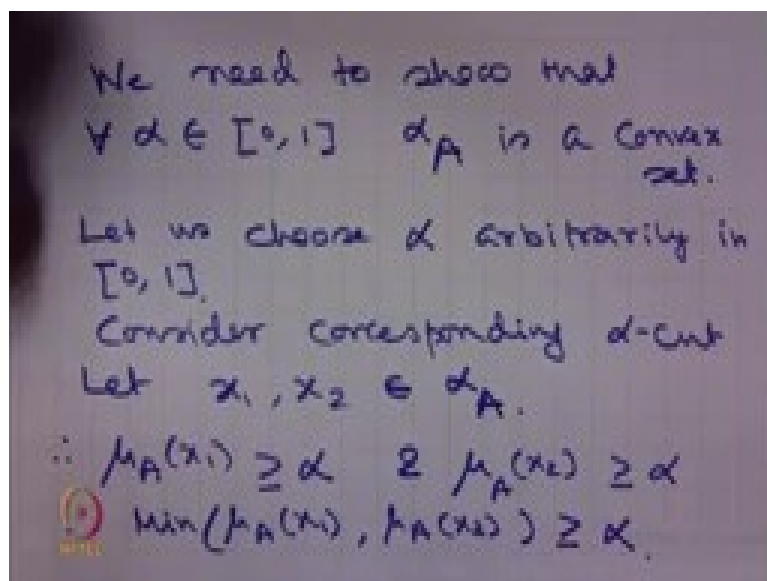 We need to show that
∀ α ∈ [0, 1] αA is a Convex
set.
Let us choose α arbitrarily in
[0, 1].
Consider corresponding α-cut
Let x₁, x₂ ∈ αA.
∴ μA(x₁) ≥ α & μA(x₂) ≥ α
Min(μA(x₁), μA(x₂)) ≥ α.
NPTEL